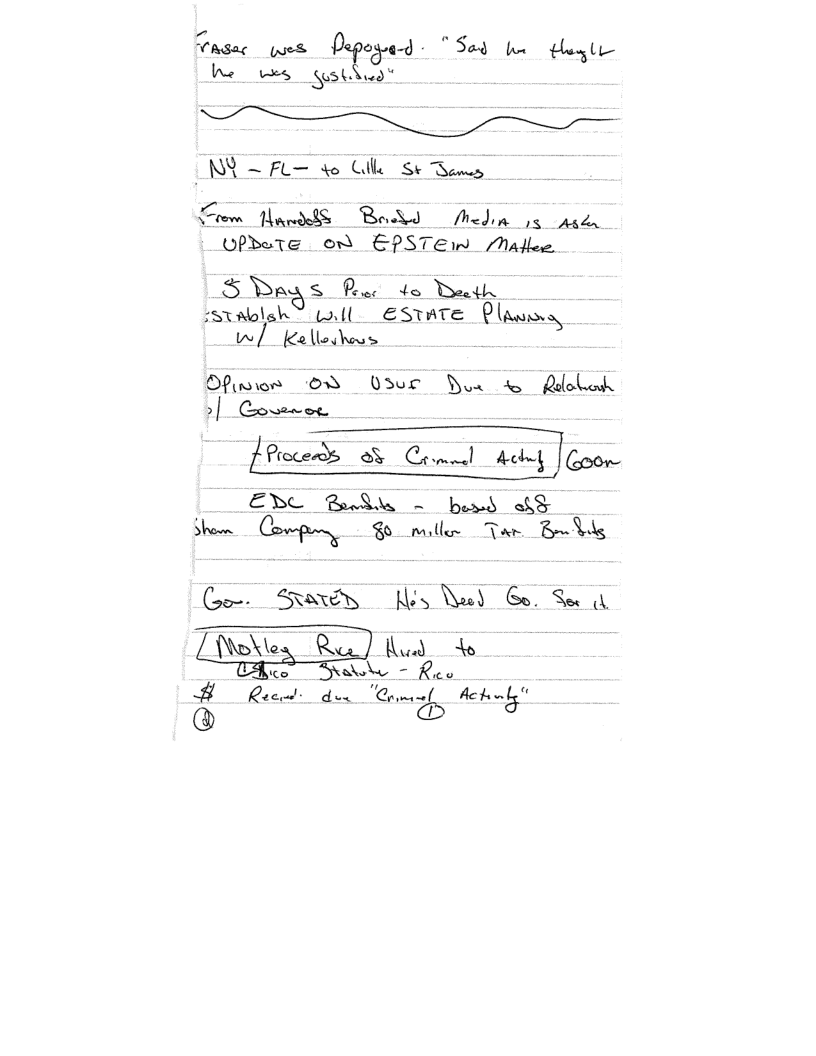 Fraser was Depoyed. "Said he thought
he was justified"
NY - FL - to Little St James
From Handoff Briefed Media is Asken
UPDATE ON EPSTEIN Matter
5 DAYS Prior to Death
ESTABlish Will ESTATE Planning
w/ Kellerhaus
OPINION ON USVI Due to Relationsh
w/ Governor
Proceeds of Criminal Activity
EDC Benefits - based off
Sham Company 80 million Tax Benefits
Gov. STATED He's Dead Go. for it
Motley Rice Hired to
CRico Statute - Rico
$ Recied. due "Criminal Activity"
2 1